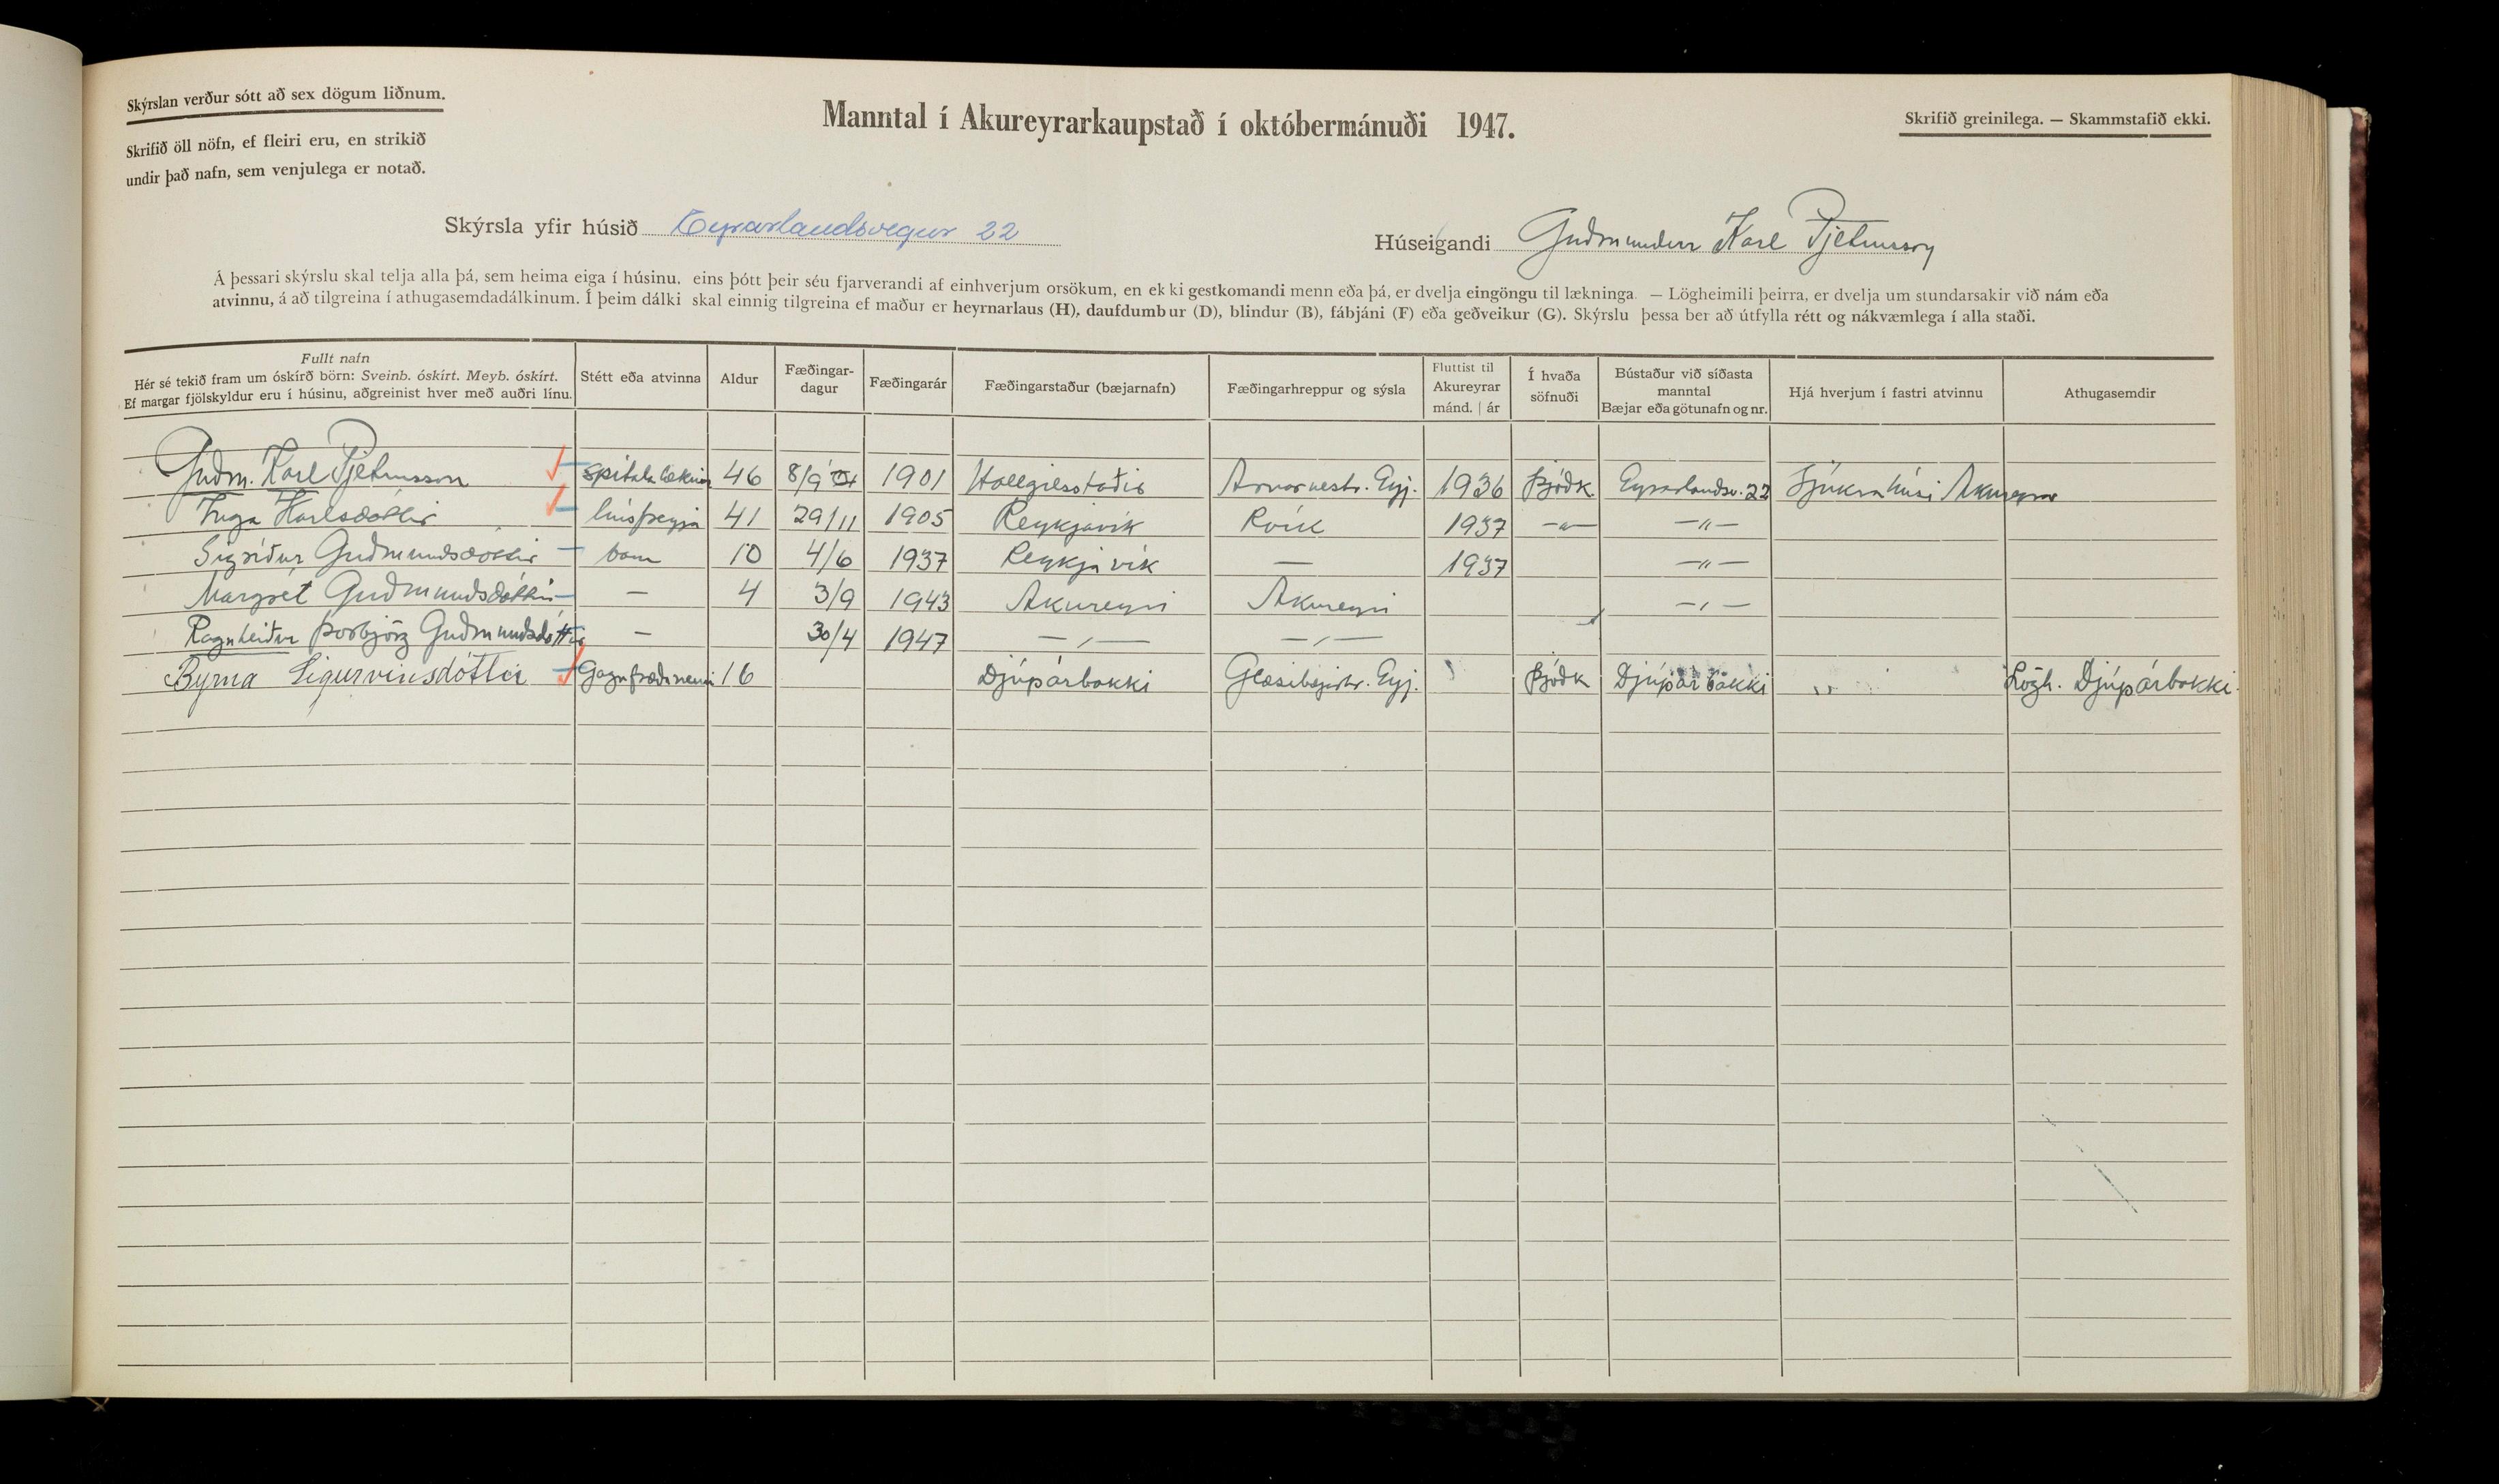 Skýrslan verður sótt að sex dögum liðnum.
Skrifið öll nöfn, ef fleiri eru, en strikið
undir það nafn, sem venjulega er notað.
Manntal í Akureyrarkaupstað í októbermánuði 1947.
Skrifið greinilega. — Skammstafið ekki.
Skýrsla yfir húsið Eyrarlandsvegur 22
Húseigandi Guðmundur Karl Pjetursson
Á þessari skýrslu skal telja alla þá, sem heima eiga í húsinu, eins þótt þeir séu fjarverandi af einhverjum orsökum, en ekki gestkomandi menn eða þá, er dvelja eingöngu til lækninga. — Lögheimili þeirra, er dvelja um stundarsakir við nám eða
atvinnu, á að tilgreina í athugasemdadálkinum. Í þeim dálki skal einnig tilgreina ef maður er heyrnarlaus (H), daufdumbur (D), blindur (B), fábjáni (F) eða geðveikur (G). Skýrslu þessa ber að útfylla rétt og nákvæmlega í alla staði.
Fullt nafn
Hér sé tekið fram um óskírð börn: Sveinb. óskírt. Meyb. óskírt.
Ef margar fjölskyldur eru í húsinu, aðgreinist hver með auðri línu.
Stétt eða atvinna
Aldur
Fæðingar-
dagur
Fæðingarár
Fæðingarstaður (bæjarnafn)
Fæðingarhreppur og sýsla
Fluttist til
Akureyrar
mánd. | ár
Í hvaða
söfnuði
Bústaður við síðasta
manntal
Bæjar eða götunafn og nr.
Hjá hverjum í fastri atvinnu
Athugasemdir
Guðm. Karl Pjetursson spítalalæknir 46 8/9 1901 Hallgilsstaðir Arnarneshr. Eyj. 1936 Þjóðk. Eyrarlandsv. 22 Sjúkrahúsi Akureyrar
Inga Karlsdóttir húsfreyja 41 29/11 1905 Reykjavík Rvík 1937 —"— —"—
Sigríður Guðmundsdóttir — barn 10 4/6 1937 Reykjavík — 1937 —"—
Margrét Guðmundsdóttir — — 4 3/9 1943 Akureyri Akureyri —"—
Ragnheiður Þorbjörg Guðmundsdóttir — 30/4 1947 —"— —"—
Byrna Sigurvinsdóttir Gagnfræðanemi 16 Djúpárbakki Glæsibæjarhr. Eyj. Þjóðk Djúpárbakki Lögh. Djúpárbakki